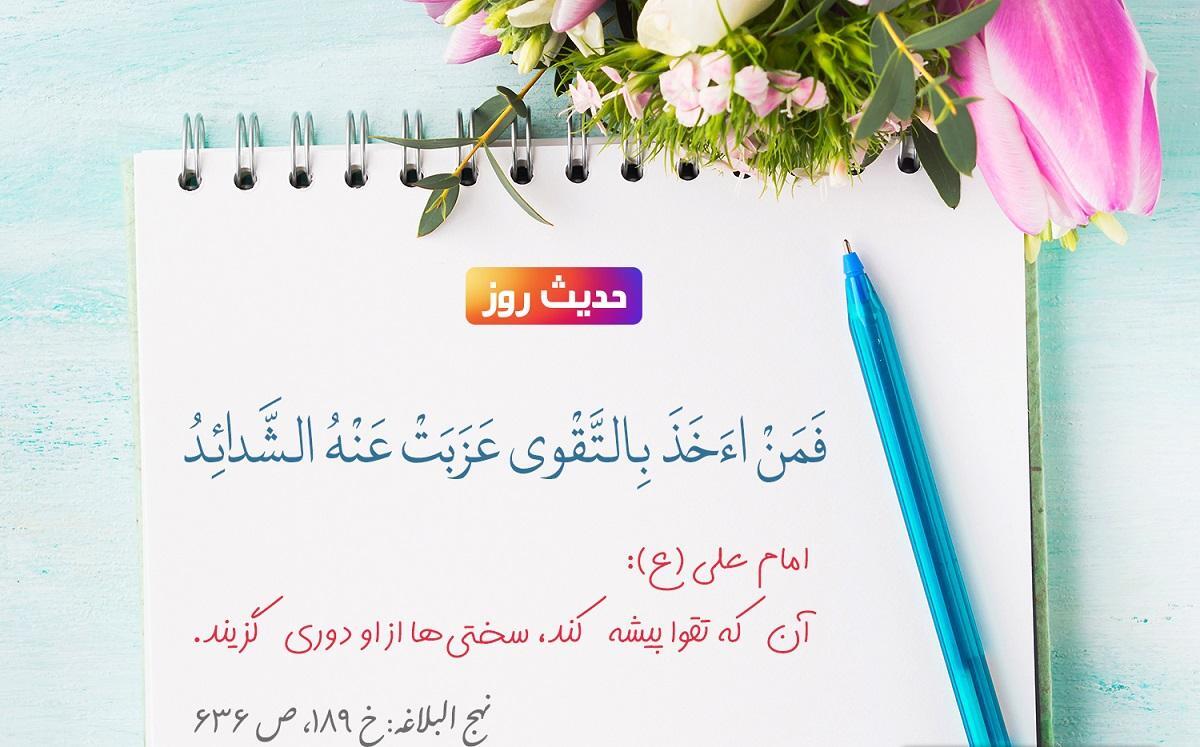 حدیث روز
فَمَنْ اءَخَذَ بِالتَّقْوى عَزَبَتْ عَنْهُ الشَّدائِدُ
امام علی (ع):
آن که تقوا پیشه کند، سختی‌ها از او دوری گزیند.
نهج البلاغه: خ ۱۸۹، ص ۶۳۶